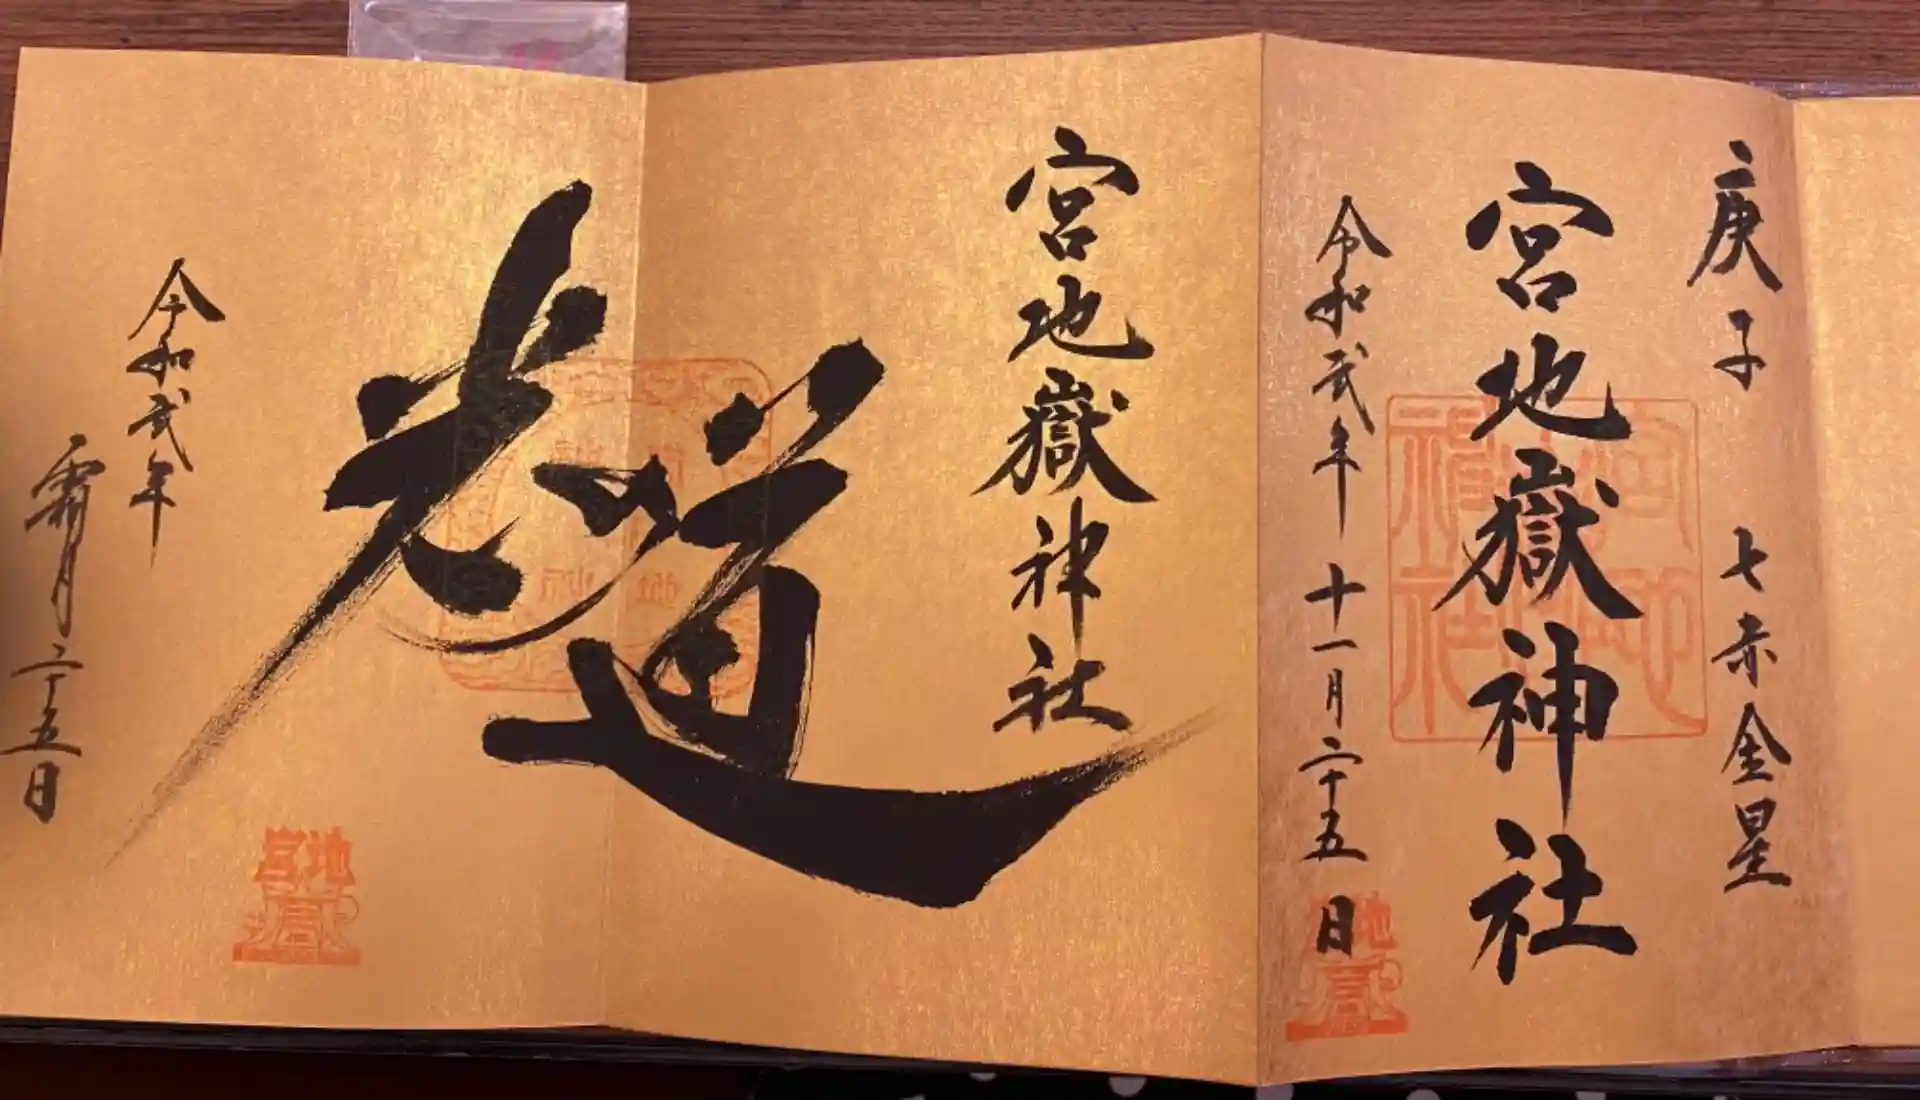 庚子 七赤金星
宮地嶽神社
令和弐年十一月二十五日
宮地嶽神社
光の道
令和弐年
霜月二十五日
宮地嶽